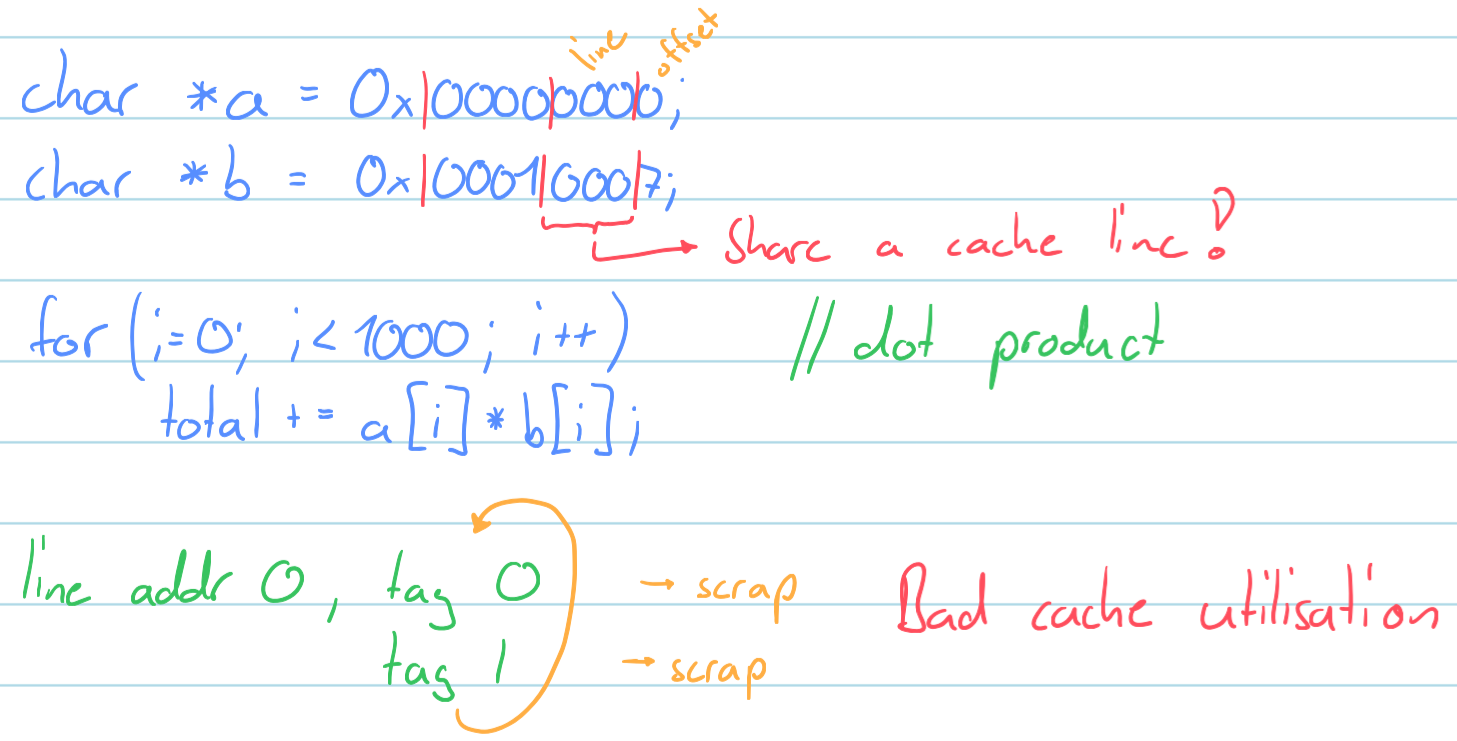 line offset
char *a = 0x|0000|000|0;
char *b = 0x|0001|000|7;
Share a cache line!
for (i=0; i<1000; i++) // dot product
total += a[i]*b[i];
line addr 0, tag 0 → scrap
tag 1 → scrap
Bad cache utilisation